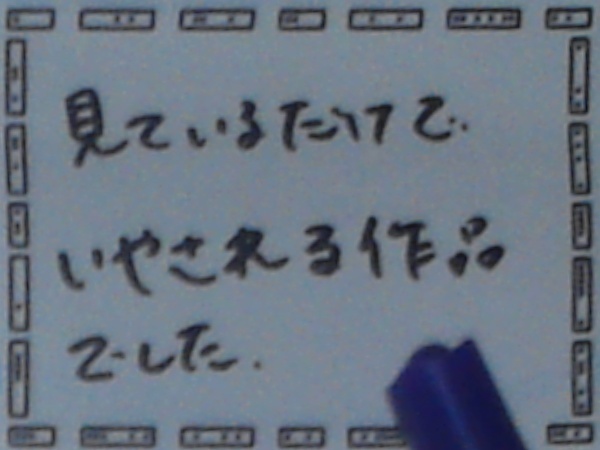 見ているだけで
いやされる作品
でした.